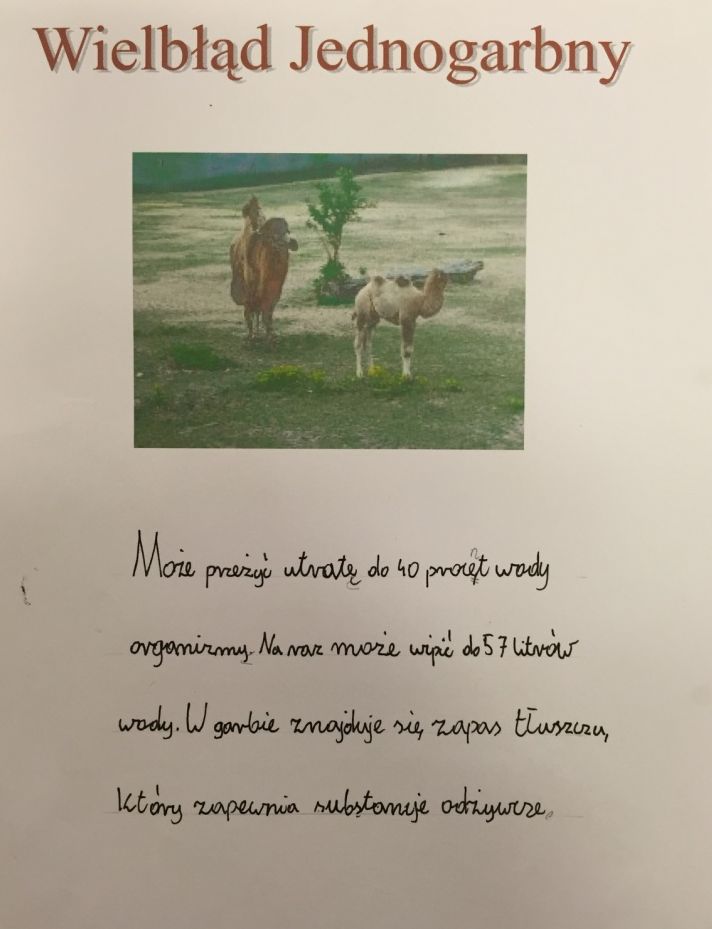 Wielbłąd Jednogarbny
Może przeżyć utratę do 40 procęt wody
organizmy. Na raz może wipić do 57 litrów
wody. W garbie znajduje się zapas tłuszczu,
który zapewnia substancje odżywcze.